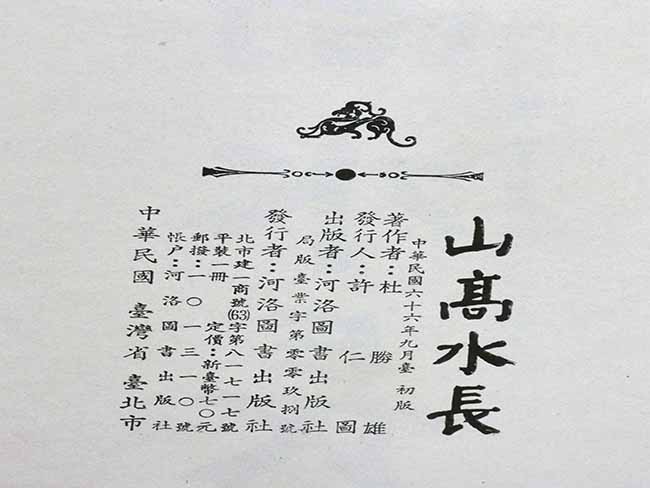 山高水長
中華民國六十六年九月臺初版
著作者：杜勝雄
發行人：許仁圖
出版者：河洛圖書出版社
局版臺業字第零零玖捌號
發行者：河洛圖書出版社
北市建一商號(63)字第八一七一七號
平裝一冊 定價：新臺幣七〇元
郵撥：一〇一三一〇號
悵户：河洛圖書出版社
中華民國 臺灣省 臺北市